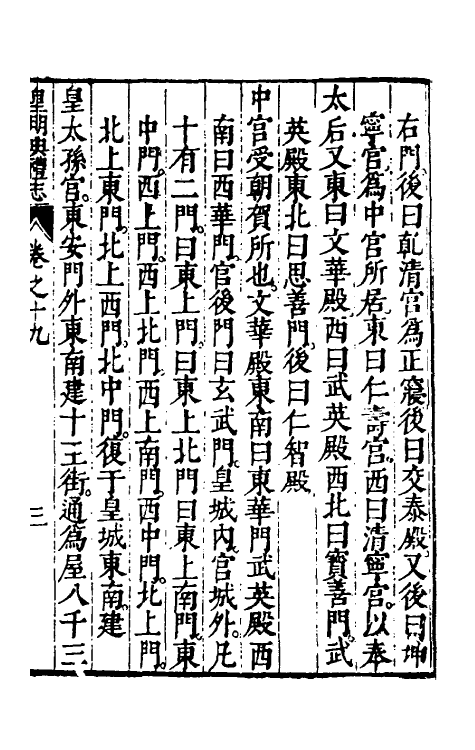 右門後曰乾清宮為正寢後曰交泰殿又後曰坤
寧宮為中宮所居東曰仁壽宮西曰清寧宮以奉
太后又東曰文華殿西曰武英殿西北曰寶善門武
英殿東北曰思善門後曰仁智殿
中宮受朝賀所也文華殿東南曰東華門武英殿西
南曰西華門宮後門曰玄武門皇城內宮城外凡
十有二門曰東上門曰東上北門曰東上南門東
中門西上門西上北門西上南門西中門北上門
北上東門北上西門北中門復于皇城東南建
皇太孫宮東安門外東南建十王街通為屋八千三
皇明典禮志 卷之十九 三